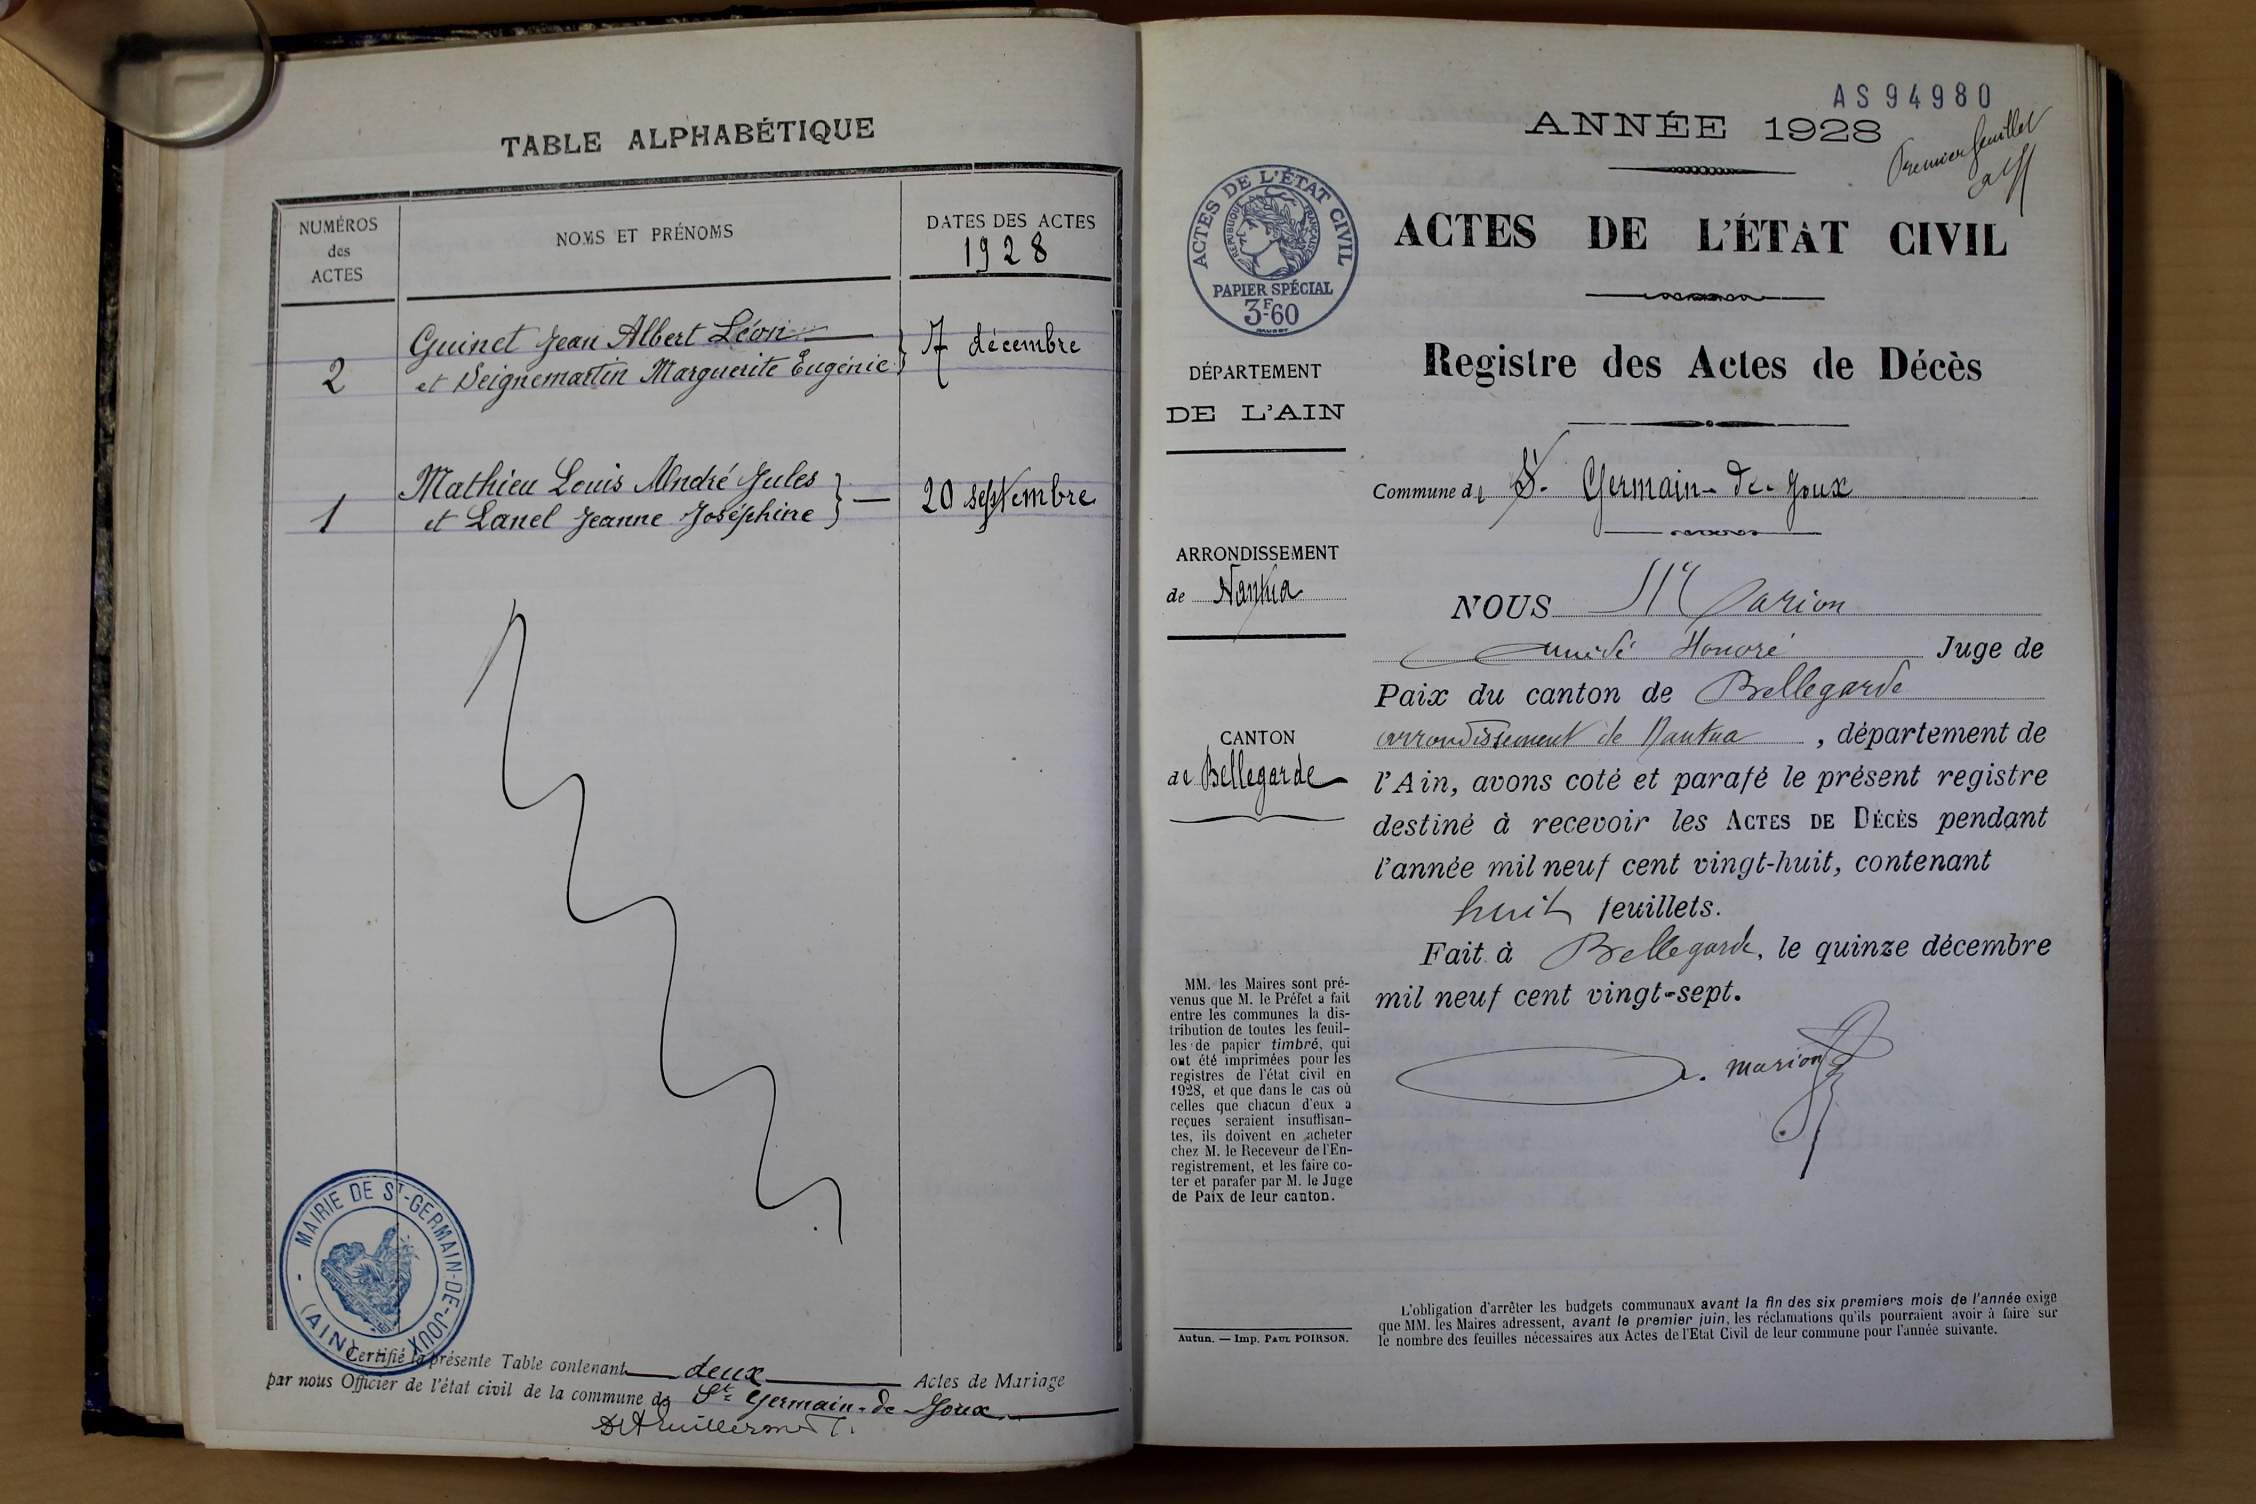 TABLE ALPHABÉTIQUE
NUMÉROS
des
ACTES
NOMS ET PRÉNOMS
DATES DES ACTES
1928
Guinet Jean Albert Léon
2 et Seignemartin Marguerite Eugénie } 7 décembre
Mathieu Louis André Jules
1 et Lanel Jeanne Joséphine } — 20 septembre
MAIRIE DE ST-GERMAIN-DE-JOUX
(AIN)
Certifié la présente Table contenant deux Actes de Mariage
par nous Officier de l'état civil de la commune de St Germain-de-Joux
AS 94980
ANNÉE 1928
Premier feuillet
ACTES DE L'ÉTAT CIVIL
RÉPUBLIQUE FRANÇAISE
PAPIER SPÉCIAL
3F-60
ACTES DE L'ÉTAT CIVIL
Registre des Actes de Décès
DÉPARTEMENT
DE L'AIN
Commune de St. Germain-de-Joux
ARRONDISSEMENT
de Nantua
CANTON
de Bellegarde
NOUS Marion
Amédé Honoré Juge de
Paix du canton de Bellegarde
arrondissement de Nantua, département de
l'Ain, avons coté et parafé le présent registre
destiné à recevoir les ACTES DE DÉCÈS pendant
l'année mil neuf cent vingt-huit, contenant
huit feuillets.
Fait à Bellegarde, le quinze décembre
mil neuf cent vingt-sept.
a. marion
MM. les Maires sont pré-
venus que M. le Préfet a fait
entre les communes la dis-
tribution de toutes les feuil-
les de papier timbré, qui
ont été imprimées pour les
registres de l'état civil en
1928, et que dans le cas où
celles que chacun d'eux a
reçues seraient insuffisan-
tes, ils doivent en acheter
chez M. le Receveur de l'En-
registrement, et les faire co-
ter et parafer par M. le Juge
de Paix de leur canton.
Autun. — Imp. PAUL POIRSON.
L'obligation d'arrêter les budgets communaux avant la fin des six premiers mois de l'année exige
que MM. les Maires adressent, avant le premier juin, les réclamations qu'ils pourraient avoir à faire sur
le nombre des feuilles nécessaires aux Actes de l'Etat Civil de leur commune pour l'année suivante.